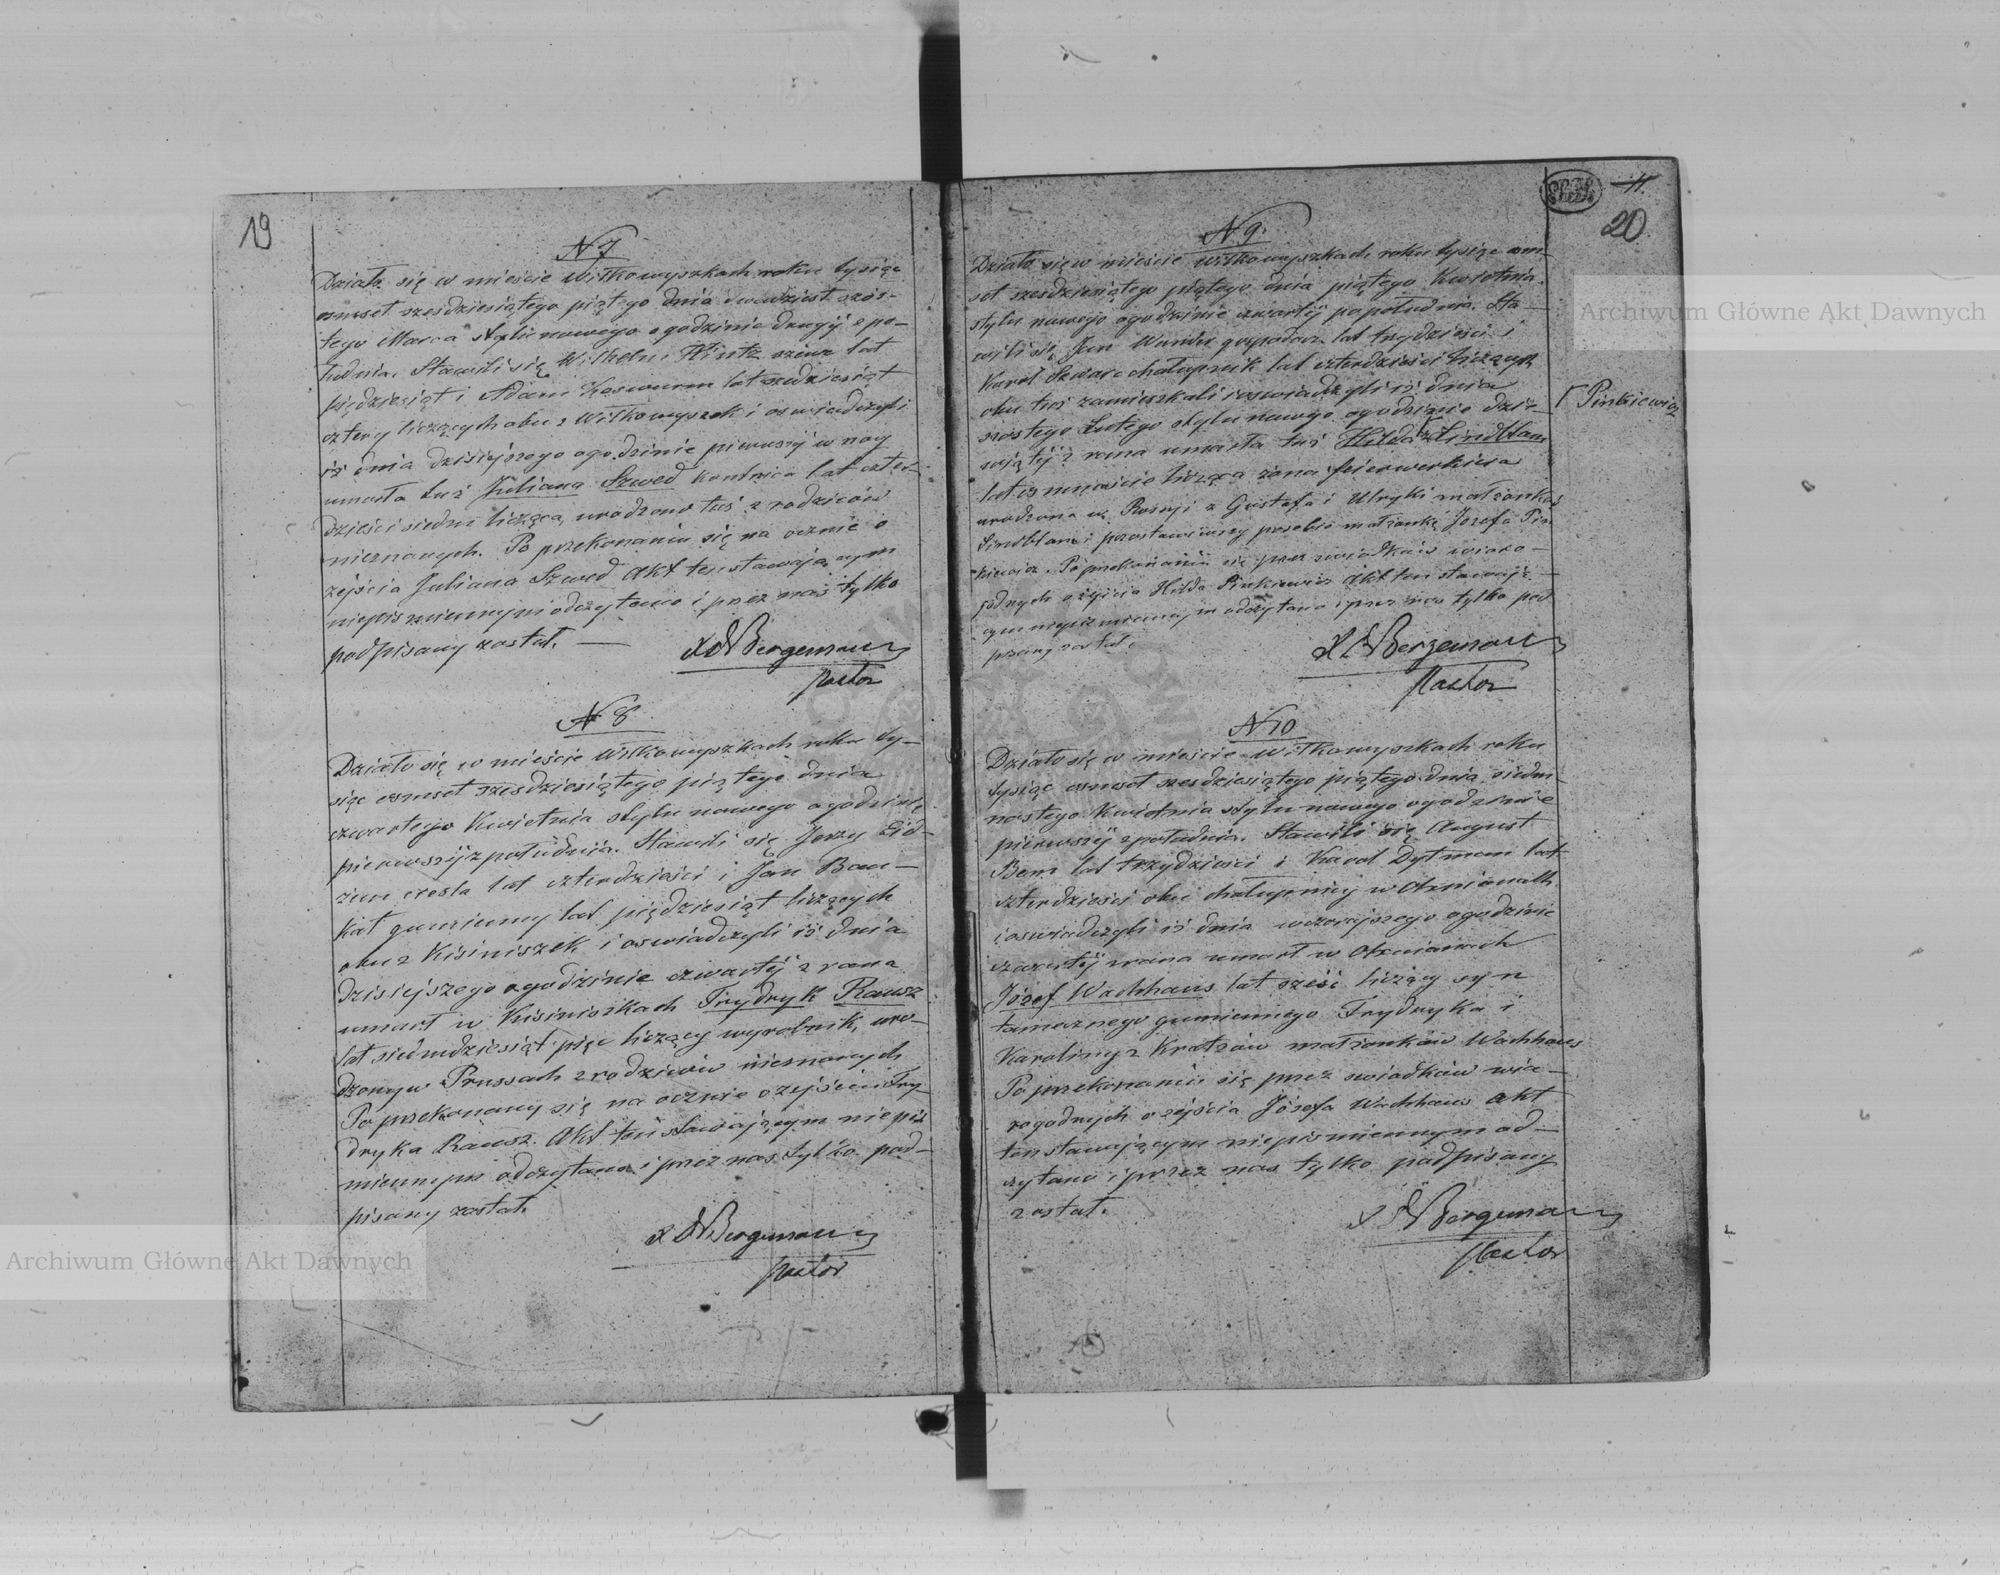 19
N 7
Działo się w mieście Wiłkowyszkach roku tysiąc
osmset szesdziesiątego piątego dnia dwudziest szós-
tego Marca stylu nowego o godzinie drugij z po-
łudnia. Stawili się Wilhelm Hintz szewc lat
pięćdziesiąt i Adam lat szesdziesiąt
cztery liczących obu z Wiłkowyszek i oswiadczyli
iż dnia dzisiejszego o godzinie pierwszij w nocy
umarła tuż Juliana Szwed komornica lat czter-
dzieści siedm licząca, urodzona tuż z rodziców
nieznanych. Po przekonaniu się na ocznie o
zejściu Juliana Szwed Akt ten stawającym
niepismiennym odczytano i przez nas tylko
podpisany został. —
Bergemann
Pastor
N 8
Działo się w mieście Wiłkowyszkach roku ty-
siąc osmset szesdziesiątego piątego dnia
czwartego Kwietnia stylu nowego o godzinie
pierwszij z południa. Stawili się Jerzy
ciesla lat czterdzieści i Jan
gumienny lat pięćdziesiąt liczących
obu z Kisiniszek i oswiadczyli iż dnia
dzisiejszego o godzinie czwartéj z rana
umarł w Kisiniszkach Frydryk Rausz
lat siedmdziesiąt pięc liczący wyrobnik, uro-
dzony w Prussach z rodziców nieznanych
Po przekonany się na ocznie o zejściu Fry-
dryka Rausz. Akt ten stawającym niepis
miennym odczytano i przez nas tylko pod-
pisany został.
Bergemann
Pastor
11.
20
N 9.
Działo się w mieście Wiłkowyszkach roku tysiąc osm-
set szesdziesiątego piątego dnia piątego Kwietnia
stylu nowego o godzinie czwartéj po południu. Sta-
wili się Jan Wunder gospodarz lat trzydzieści i
Karol Szwarc chałupnik lat czterdzieści liczących
obu tuż zamieszkali i oswiadczyli iż dnia
szostego Lutego stylu nowego o godzinie dzie-
wiątéj z rana umarła tuż Hilda z Lindblam
lat osmnaście licząca żona feierwerkiera
urodzona w Rossyi z Gustafa i Ulryki małżonków
Lindblam i pozostawiwszy po sobie małżonka Jozefa Pin
kiewicz. Po przekonaniu się przez swiadków wiaro-
godnych o zejściu Hilda Pinkiewicz Akt ten stawają-
cym niepismiennym odczytano i przez nas tylko pod
pisany został.
Bergemann
Pastor
Γ Pinkiewicz
N 10
Działo się w mieście Wiłkowyszkach roku
tysiąc osmset szesdziesiątego piątego dnia siedm-
nastego Kwietnia stylu nowego o godzinie
pierwszéj z południa. Stawili się August
Bem lat trzydzieści i Karol Dytman lat
czterdzieści obu chałupnicy w
i oswiadczyli iż dnia wczorajszego o godzinie
czwartéj z rana umarł w
Józef Wachhaus lat sześć liczący syn
tamecznego gumiennego Frydryka i
Karoliny z Kratzów małżonków Wachhaus
Po przekonaniu się przez swiadków wia-
rogodnych o zejściu Józefa Wachhaus akt
ten stawającym niepismiennym od-
czytano i przez nas tylko podpisany
został.
Bergemann
Pastor
Archiwum Główne Akt Dawnych
Archiwum Główne Akt Dawnych